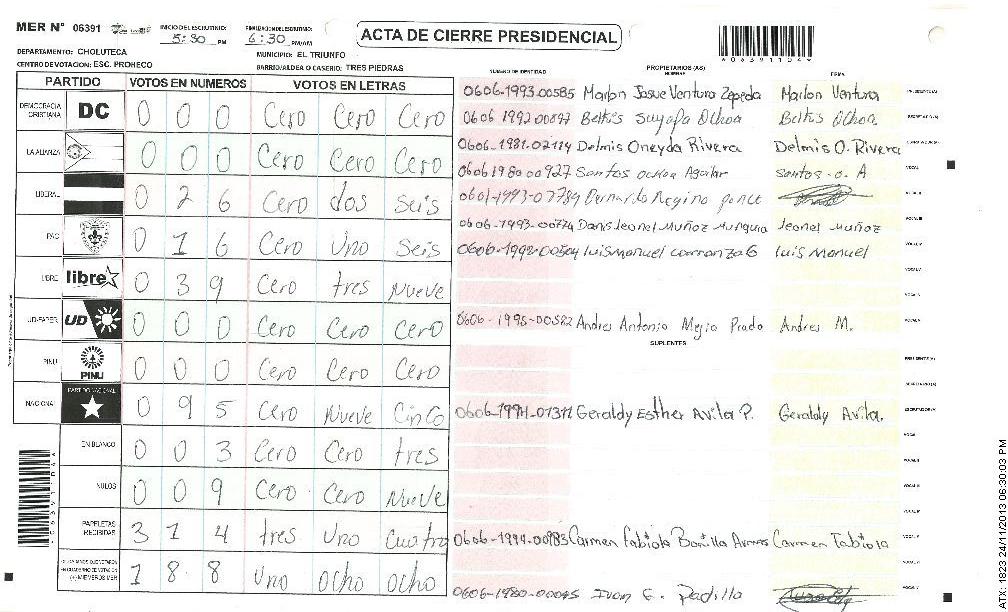 MER N° 06391
INICIO DEL ESCRUTINIO: 5:30 PM
FINALIZACION DEL ESCRUTINIO: 6:30 PM/AM
ACTA DE CIERRE PRESIDENCIAL
*06391104*
DEPARTAMENTO: CHOLUTECA
MUNICIPIO: EL TRIUNFO
CENTRO DE VOTACION: ESC. PROHECO
BARRIO/ALDEA O CASERIO: TRES PIEDRAS
PARTIDO VOTOS EN NUMEROS VOTOS EN LETRAS
DEMOCRACIA CRISTIANA DC 0 0 0 Cero Cero Cero
LA ALIANZA 0 0 0 Cero Cero Cero
LIBERAL 0 2 6 Cero dos seis
PAC 0 1 6 Cero Uno Seis
LIBRE libre 0 3 9 Cero tres Nueve
UD-FAPER UD 0 0 0 Cero Cero Cero
PINU PINU 0 0 0 Cero Cero Cero
NACIONAL PARTIDO NACIONAL 0 9 5 Cero Nueve Cinco
EN BLANCO 0 0 3 Cero Cero tres
NULOS 0 0 9 Cero Cero Nueve
PAPELETAS RECIBIDAS 3 1 4 tres Uno Cuatro
CIUDADANOS QUE VOTARON EN CUADERNO DE VOTACION (+) MIEMBROS MER 1 8 8 Uno ocho ocho
NUMERO DE IDENTIDAD PROPIETARIOS (AS) NOMBRE FIRMA
0606-1993-00585 Marlon Josue Ventura Zepeda Marlon Ventura PRESIDENTE(A)
0606 1992 00897 Beltis Suyapa Ochoa Beltis Ochoa SECRETARIO(A)
0606-1981-02114 Delmis Oneyda Rivera Delmis O. Rivera ESCRUTADOR(A)
0606 1980 00927 Santos Ochoa Aguilar Santos o. A VOCAL I
0601-1993-07789 Bernardo Regino ponce VOCAL II
0606-1993-00774 Danis Leonel Muñoz Munguia Leonel Muñoz VOCAL III
0606-1992-00504 Luis Manuel carranza G Luis Manuel VOCAL IV
VOCAL V
0606-1995-00582 Andres Antonio Mejia Prado Andres M.
SUPLENTES
PRESIDENTE(A)
SECRETARIO(A)
Geraldy Esther Avila P. Geraldy Avila. ESCRUTADOR(A)
VOCAL I
VOCAL II
VOCAL III
VOCAL IV
Carmen Fabiola Bonilla Carmen Fabiola VOCAL V
0606-1980-00045 Ivan G. Padilla
1823 24/11/2013 06:30:03 PM